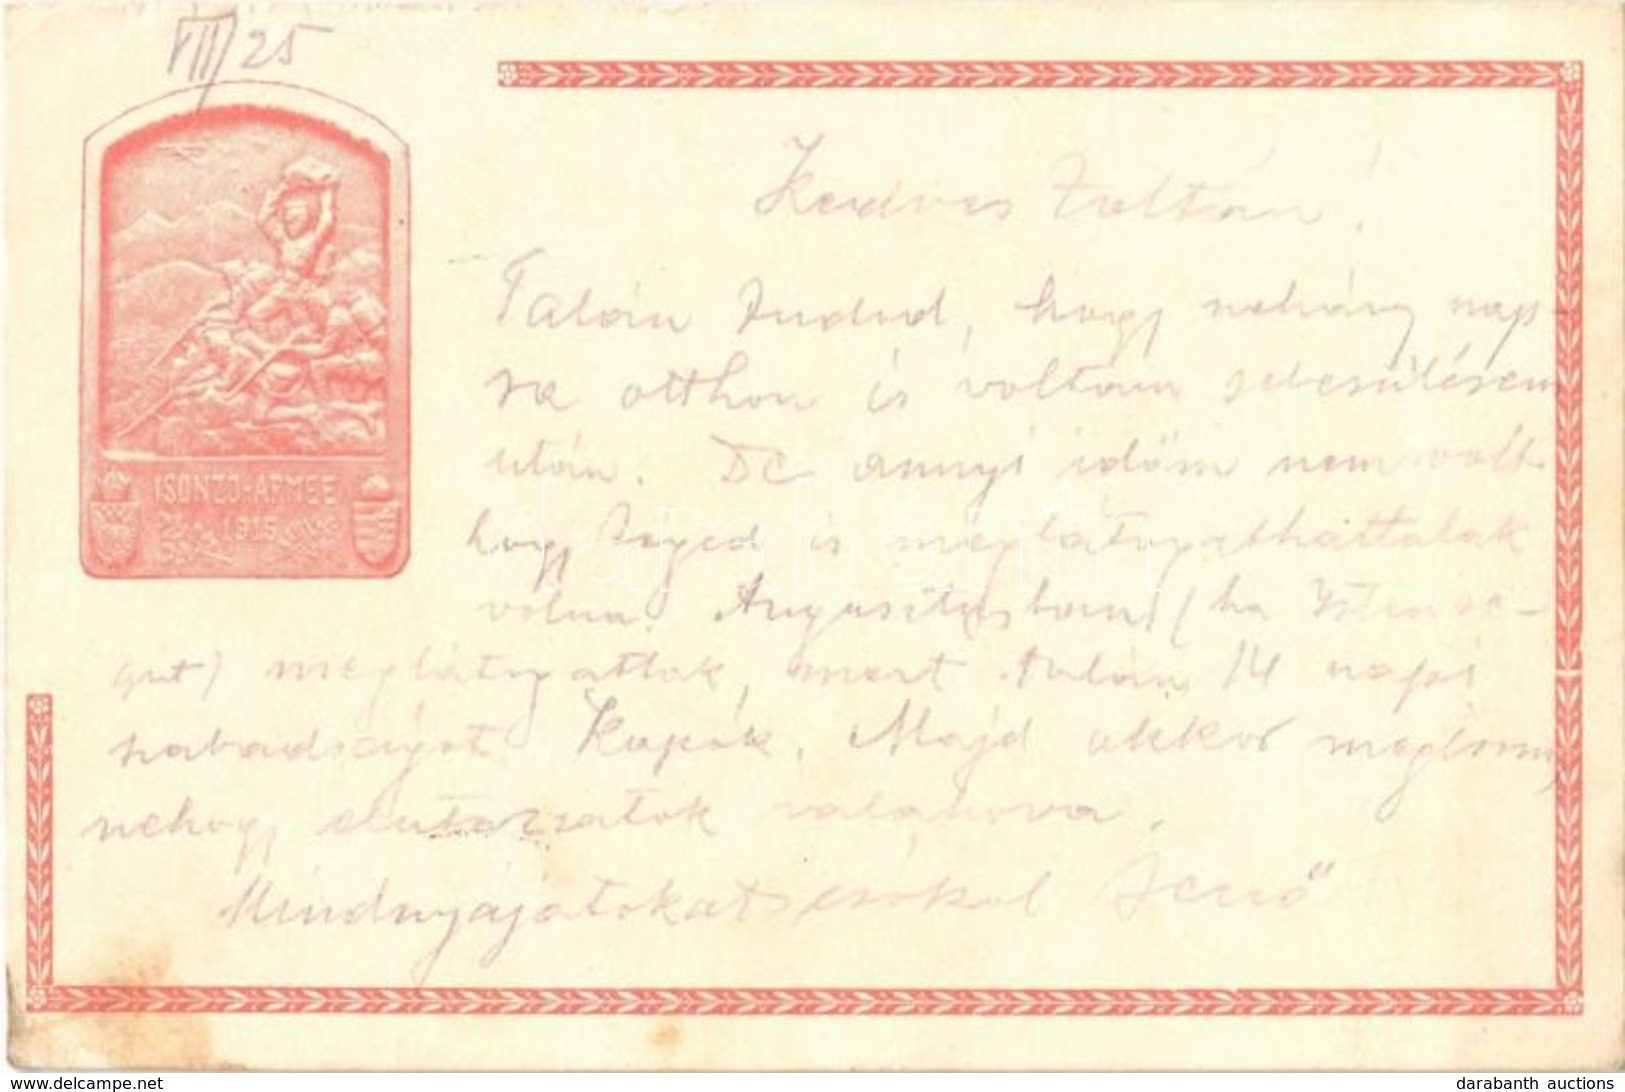 VII/25
ISONZO-ARMEE
1915
Kedves Zoltán!
Talán Tudod, hogy nehány nap-
ra otthon is voltam sebesülésem
után. De annyi időm nem volt
hogy Teged is meglátogathattalak
volna. Augusztusban (ha Isten se-
git) meglátogatlak, mert talán 14 napi
szabadságot kapok. Majd akkor megirom,
nehogy elutazzatok valahova.
Mindnyájatokat csókol Jenő
darabanth
www.delcampe.net
darabanth auctions